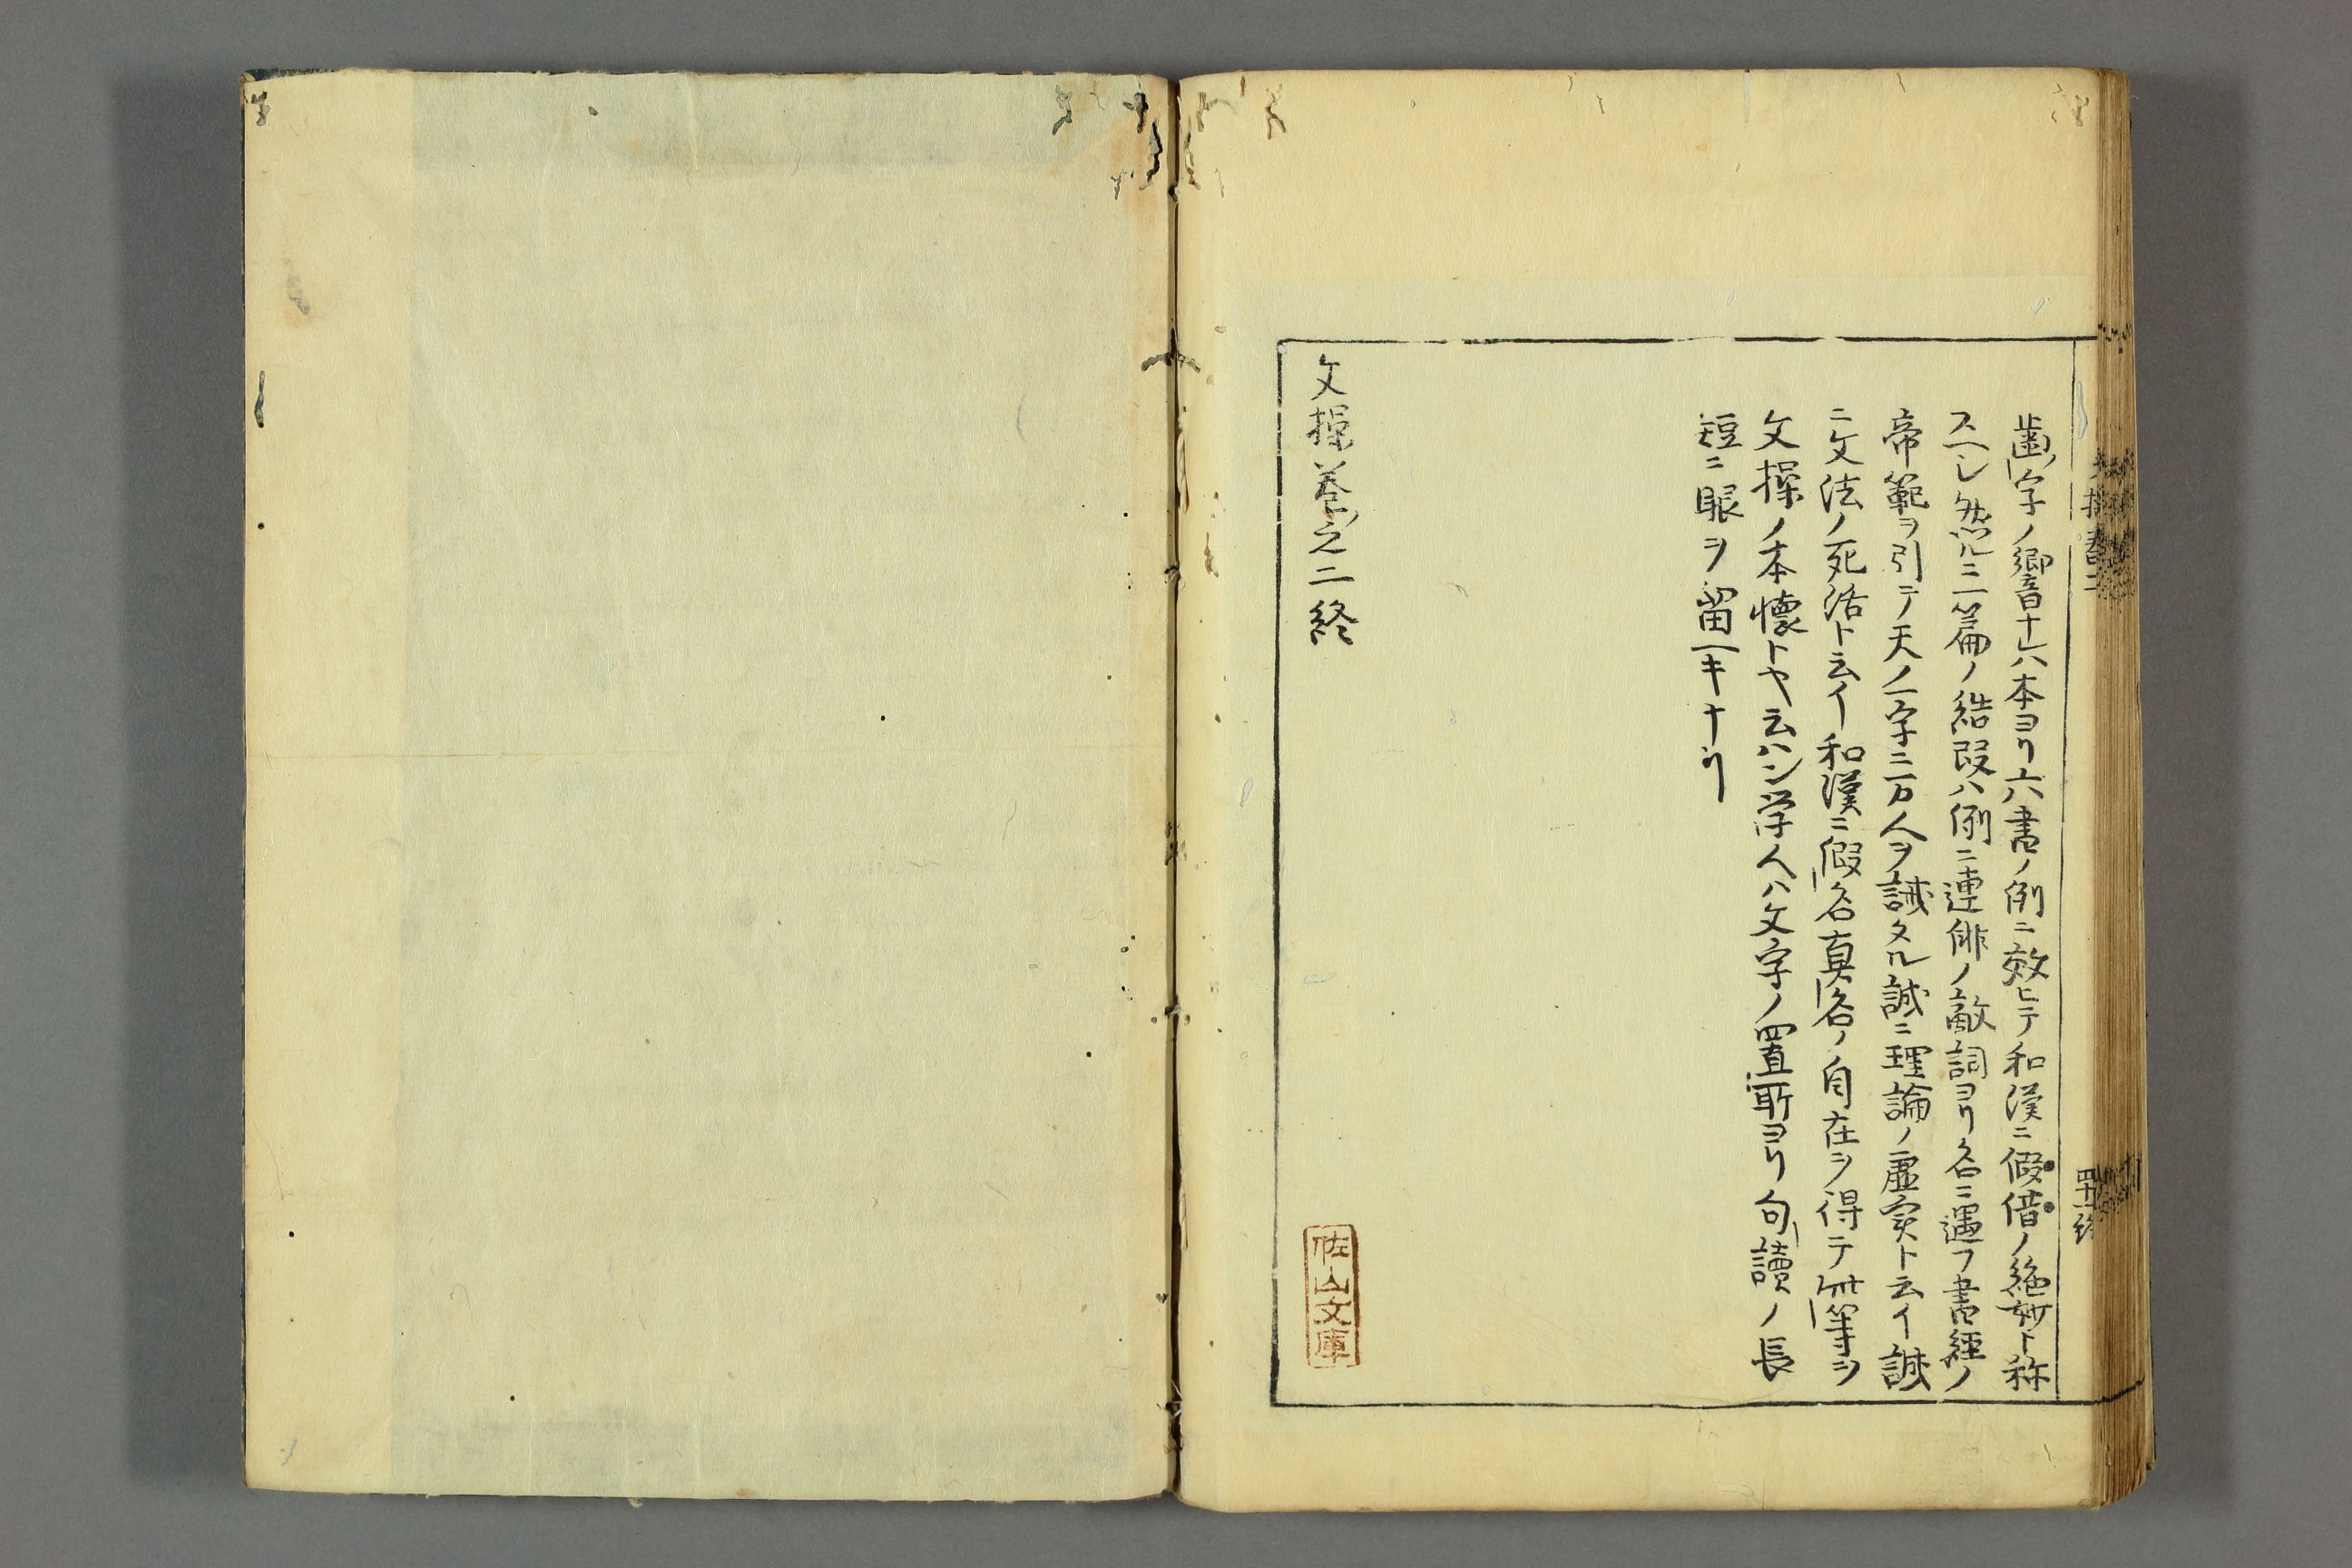 歯字ノ響ナレハ本ヨリ六書ノ例ニ效ヒテ和漢ニ假借ノ絶妙ト称
スヘシ然ルニ二篇ノ結段ハ例ニ連俳ノ敵詞ヨリ名ニ遇フ書經ノ
帝範ヲ引テ天ノ一字ニ万人ヲ誡タル誠ニ理論ノ虚実ト云イ誠
ニ文法ノ死活ト云イ和漢ニ假名真名ノ自在ヲ得テ無筆ヲ
文操ノ本懐トヤ云ハン学人ハ文字ノ置所ヨリ句讀ノ長
短ニ眼ヲ留ヘキナリ
文操巻之二終
佐山文庫
四十一終